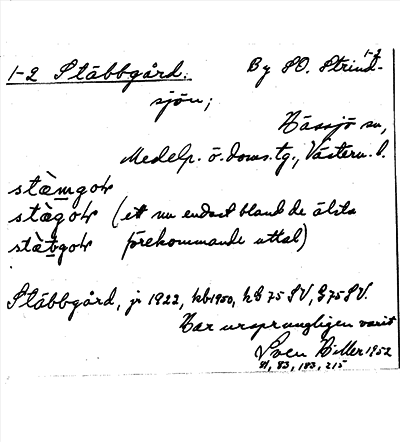 1-2 Stäbbgård. By SO. Strind-
1-2
sjön;
Hässjö sn,
Medelp. ö. doms.tg., Västern. l.
stä̀mgoɽ
stä̀goɽ (ett nu endast bland de älsta
stä̀bgoɽ förekommande uttal)
Stäbbgård, jr 1922, kb 1950, hS 75 SV, G 75 SV.
Har ursprungligen varit
Sven Hiller 1952
81, 83, 183, 215